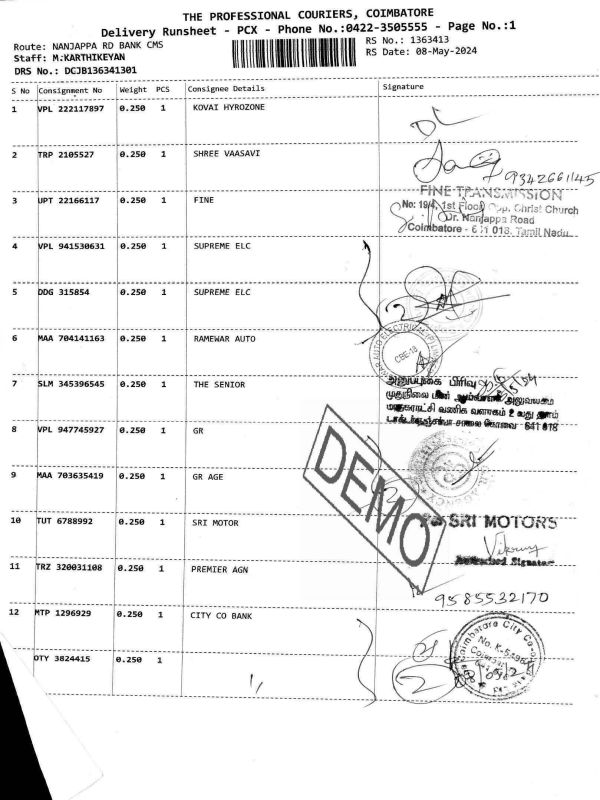 THE PROFESSIONAL COURIERS, COIMBATORE
Delivery Runsheet - PCX - Phone No.:0422-3505555 - Page No.:1
Route: NANJAPPA RD BANK CMS
RS No.: 1363413
Staff: M:KARTHIKEYAN
RS Date: 08-May-2024
DRS No.: DCJB136341301
S No Consignment No Weight PCS Consignee Details Signature
1 VPL 222117897 0.250 1 KOVAI HYROZONE
2 TRP 2105527 0.250 1 SHREE VAASAVI
9342661145
3 UPT 22166117 0.250 1 FINE
FINE TRANSMISSION
No: 19/4, 1st Floor, Opp. Christ Church
Dr. Nanjappa Road
Coimbatore - 641 018. Tamil Nadu
4 VPL 941530631 0.250 1 SUPREME ELC
5 DDG 315854 0.250 1 SUPREME ELC
2
6 MAA 704141163 0.250 1 RAMEWAR AUTO
CBE-18
7 SLM 345396545 0.250 1 THE SENIOR
முதுநிலை மின் அலுவலகம்
மாநகராட்சி வணிக வளாகம் 2 வது தளம்
சாலை கோவை 641 018
8 VPL 947745927 0.250 1 GR
9 MAA 703635419 0.250 1 GR AGE
DEMO
10 TUT 6788992 0.250 1 SRI MOTOR
SRI MOTORS
Authorised Signator
11 TRZ 320031108 0.250 1 PREMIER AGN
9585532170
12 MTP 1296929 0.250 1 CITY CO BANK
Coimbatore City Co-op
OTY 3824415 0.250 1
2